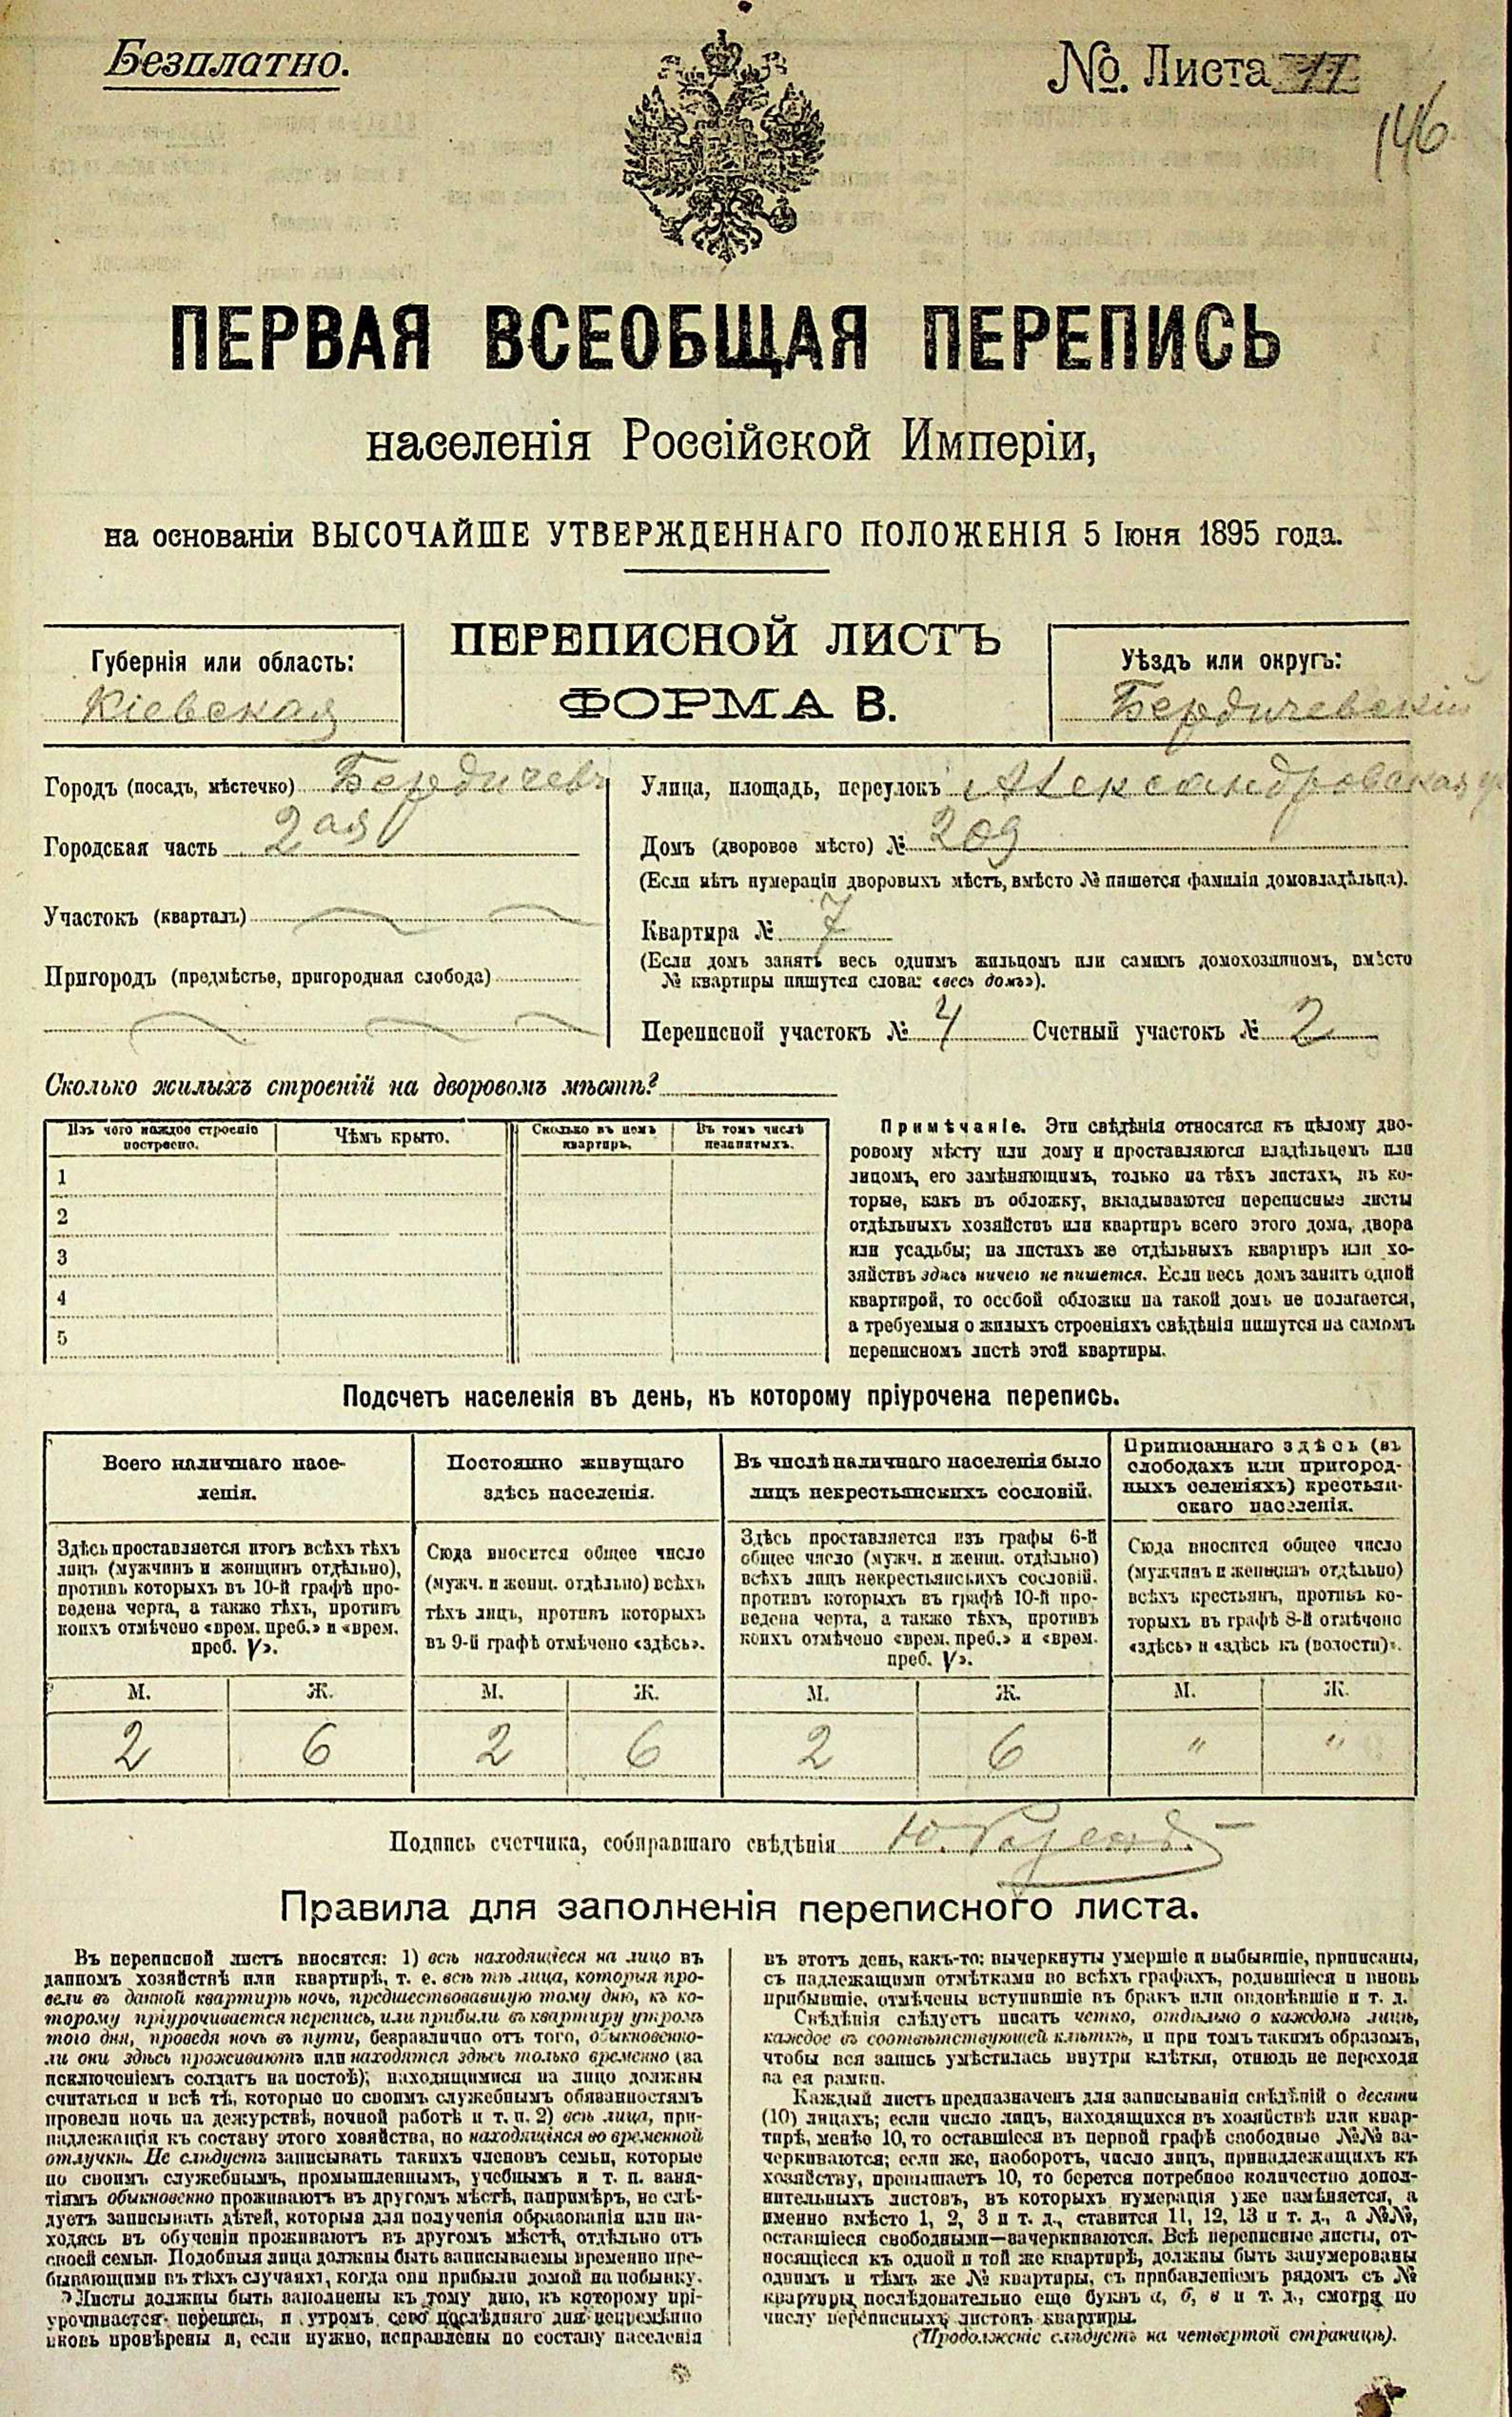 Безплатно.
№. Листа
146
ПЕРВАЯ ВСЕОБЩАЯ ПЕРЕПИСЬ
населенія Россійской Имперіи,
на основаніи ВЫСОЧАЙШЕ УТВЕРЖДЕННАГО ПОЛОЖЕНІЯ 5 Іюня 1895 года.
ПЕРЕПИСНОЙ ЛИСТЪ
ФОРМА В.
Губернія или область:
Кіевская
Уѣздъ или округъ:
Бердичевскій
Городъ (посадъ, мѣстечко) Бердичевъ
Городская часть 2ая
Участокъ (кварталъ)
Пригородъ (предмѣстье, пригородная слобода)
Улица, площадь, переулокъ Александровская у.
Домъ (дворовое мѣсто) № 209
(Если нѣтъ нумераціи дворовыхъ мѣстъ, вмѣсто № пишется фамилія домовладѣльца).
Квартира № 7
(Если домъ занятъ весь однимъ жильцомъ или самимъ домохозяиномъ, вмѣсто
№ квартиры пишутся слова: «весь домъ»).
Переписной участокъ № 4 Счетный участокъ № 2
Сколько жилыхъ строеній на дворовомъ мѣстѣ?
Изъ чего каждое строеніе
построено.
Чѣмъ крыто.
Сколько въ немъ
квартиръ.
Въ томъ числѣ
незанятыхъ.
1
2
3
4
5
Примѣчаніе. Эти свѣдѣнія относятся къ цѣлому дво-
ровому мѣсту или дому и проставляются владѣльцемъ или
лицомъ, его замѣняющимъ, только на тѣхъ листахъ, въ ко-
торые, какъ въ обложку, вкладываются переписные листы
отдѣльныхъ хозяйствъ или квартиръ всего этого дома, двора
или усадьбы; на листахъ же отдѣльныхъ квартиръ или хо-
зяйствъ здѣсь ничего не пишется. Если весь домъ занятъ одной
квартирой, то особой обложки на такой домъ не полагается,
а требуемыя о жилыхъ строеніяхъ свѣдѣнія пишутся на самомъ
переписномъ листѣ этой квартиры.
Подсчетъ населенія въ день, къ которому пріурочена перепись.
Всего наличнаго насе-
ленія.
Постоянно живущаго
здѣсь населенія.
Въ числѣ наличнаго населенія было
лицъ некрестьянскихъ сословій.
Приписаннаго здѣсь (въ
слободахъ или пригород-
ныхъ селеніяхъ) крестьян-
скаго населенія.
Здѣсь проставляется итогъ всѣхъ тѣхъ
лицъ (мужчинъ и женщинъ отдѣльно),
противъ которыхъ въ 10-й графѣ про-
ведена черта, а также тѣхъ, противъ
коихъ отмѣчено «врем. преб.» и «врем.
преб. V».
Сюда вносится общее число
(мужч. и женщ. отдѣльно) всѣхъ
тѣхъ лицъ, противъ которыхъ
въ 9-й графѣ отмѣчено «здѣсь».
Здѣсь проставляется изъ графы 6-й
общее число (мужч. и женщ. отдѣльно)
всѣхъ лицъ некрестьянскихъ сословій,
противъ которыхъ въ графѣ 10-й про-
ведена черта, а также тѣхъ, противъ
коихъ отмѣчено «врем. преб.» и «врем.
преб. V».
Сюда вносится общее число
(мужчинъ и женщинъ отдѣльно)
всѣхъ крестьянъ, противъ ко-
торыхъ въ графѣ 8-й отмѣчено
«здѣсь» и «здѣсь къ (волости)».
М. Ж. М. Ж. М. Ж. М. Ж.
2 6 2 6 2 6 " "
Подпись счетчика, собиравшаго свѣдѣнія Ю.
Правила для заполненія переписного листа.
Въ переписной листъ вносятся: 1) всѣ находящіеся на лицо въ
данномъ хозяйствѣ или квартирѣ, т. е. всѣ тѣ лица, которыя про-
вели въ данной квартирѣ ночь, предшествовавшую тому дню, къ ко-
торому пріурочивается перепись, или прибыли въ квартиру утромъ
того дня, проведя ночь въ пути, безразлично отъ того, обыкновенно-
ли они здѣсь проживаютъ или находятся здѣсь только временно (за
исключеніемъ солдатъ на постоѣ); находящимися на лицо должны
считаться и всѣ тѣ, которые по своимъ служебнымъ обязанностямъ
провели ночь на дежурствѣ, ночной работѣ и т. п. 2) всѣ лица, при-
надлежащія къ составу этого хозяйства, но находящіяся во временной
отлучкѣ. Не слѣдуетъ записывать такихъ членовъ семьи, которые
по своимъ служебнымъ, промышленнымъ, учебнымъ и т. п. заня-
тіямъ обыкновенно проживаютъ въ другомъ мѣстѣ, напримѣръ, не слѣ-
дуетъ записывать дѣтей, которыя для полученія образованія или на-
ходясь въ обученіи проживаютъ въ другомъ мѣстѣ, отдѣльно отъ
своей семьи. Подобныя лица должны быть записываемы временно пре-
бывающими въ тѣхъ случаяхъ, когда они прибыли домой на побывку.
Листы должны быть заполнены къ тому дню, къ которому прі-
урочивается перепись, и утромъ сего послѣдняго дня непремѣнно
вновь провѣрены и, если нужно, исправлены по составу населенія
въ этотъ день, какъ-то: вычеркнуты умершіе и выбывшіе, приписаны,
съ надлежащими отмѣтками во всѣхъ графахъ, родившіеся и вновь
прибывшіе, отмѣчены вступившіе въ бракъ или овдовѣвшіе и т. д.
Свѣдѣнія слѣдуетъ писать четко, отдѣльно о каждомъ лицѣ,
каждое въ соотвѣтствующей клѣткѣ, и при томъ такимъ образомъ,
чтобы вся запись умѣстилась внутри клѣтки, отнюдь не переходя
за ея рамки.
Каждый листъ предназначенъ для записыванія свѣдѣній о десяти
(10) лицахъ; если число лицъ, находящихся въ хозяйствѣ или квар-
тирѣ, менѣе 10, то оставшіеся въ первой графѣ свободные №№ за-
черкиваются; если же, наоборотъ, число лицъ, принадлежащихъ къ
хозяйству, превышаетъ 10, то берется потребное количество допол-
нительныхъ листовъ, въ которыхъ нумерація уже измѣняется, а
именно вмѣсто 1, 2, 3 и т. д., ставится 11, 12, 13 и т. д., а №№,
оставшіеся свободными—зачеркиваются. Всѣ переписные листы, от-
носящіеся къ одной и той же квартирѣ, должны быть занумерованы
однимъ и тѣмъ же № квартиры, съ прибавленіемъ рядомъ съ №
квартиры последовательно еще буквъ а, б, в и т. д., смотря по
числу переписныхъ листовъ квартиры.
(Продолженіе слѣдуетъ на четвертой страницѣ).